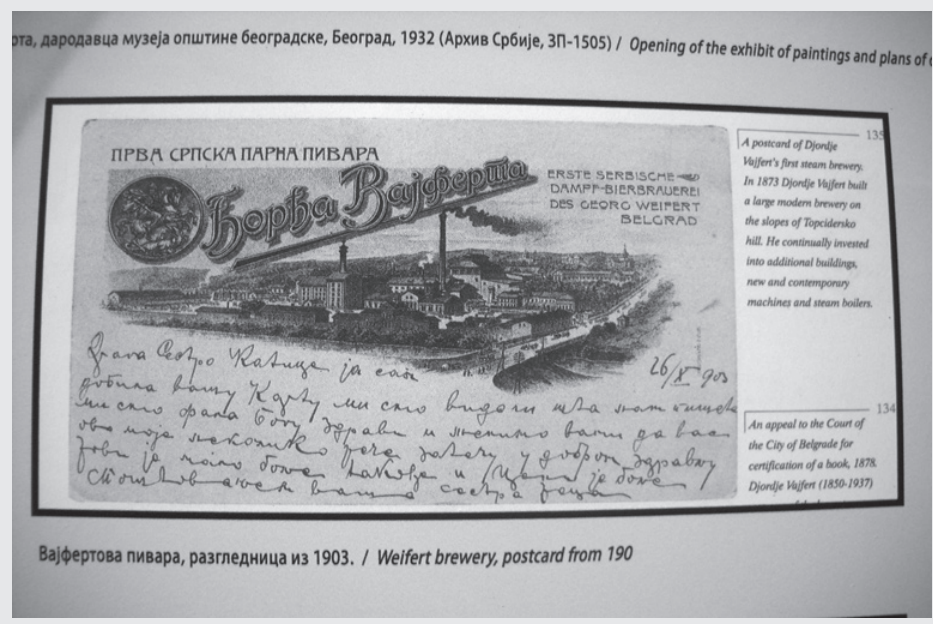 рта, дародавца музеја општине београдске, Београд, 1932 (Архив Србије, ЗП-1505) / Opening of the exhibit of paintings and plans of
ПРВА СРПСКА ПАРНА ПИВАРА
Ђорђа Вајферта
ERSTE SERBISCHE
DAMPF-BIERBRAUEREI
DES GEORG WEIFERT
BELGRAD
Сестро Катице ја сам
26/X 903
добила вашу Карту ми смо видоли
ми смо фала Богу здрави и мислимо вами да вас
ово моја неколико рече затечу у добром здрављу
ваша сестра
135
A postcard of Djordje
Vajfert's first steam brewery.
In 1873 Djordje Vajfert built
a large modern brewery on
the slopes of Topcidersko
hill. He continually invested
into additional buildings,
new and contemporary
machines and steam boilers.
134
An appeal to the Court of
the City of Belgrade for
certification of a book, 1878.
Djordje Vajfert (1850-1937)
Вајфертова пивара, разгледница из 1903. / Weifert brewery, postcard from 190